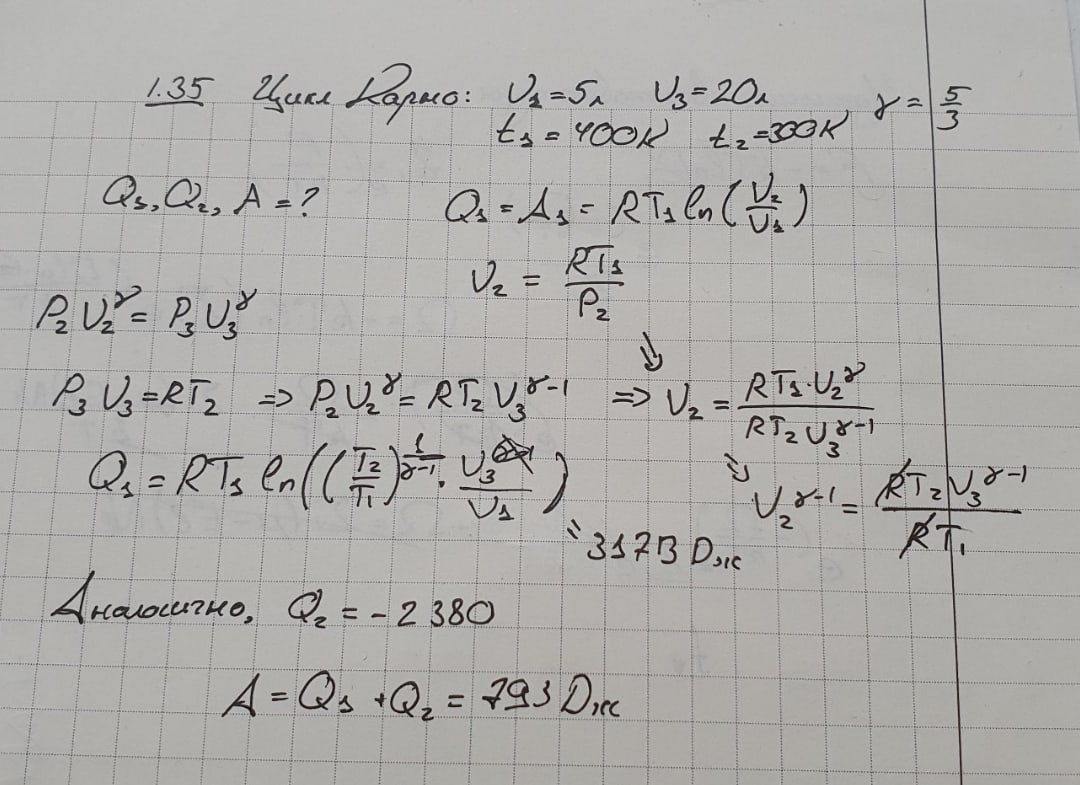 1.35 Цикл Карно: V₁ = 5л V₃ = 20л γ = 5/3
t₁ = 400K t₂ = 300K
Q₁, Q₂, A = ? Q₁ = A₁ = RT₁ ln(V₂/V₁)
V₂ = RT₁/P₂
P₂V₂^γ = P₃V₃^γ
P₃V₃ = RT₂ => P₂V₂^γ = RT₂V₃^(γ-1) => V₂ = RT₁·V₂^γ/RT₂V₃^(γ-1)
Q₁ = RT₁ ln((T₂/T₁)^(1/(γ-1)) · V₃/V₁) V₂^(γ-1) = RT₂V₃^(γ-1)/RT₁
= 3173 Дж
Аналогично, Q₂ = -2380
A = Q₁ + Q₂ = 793 Дж